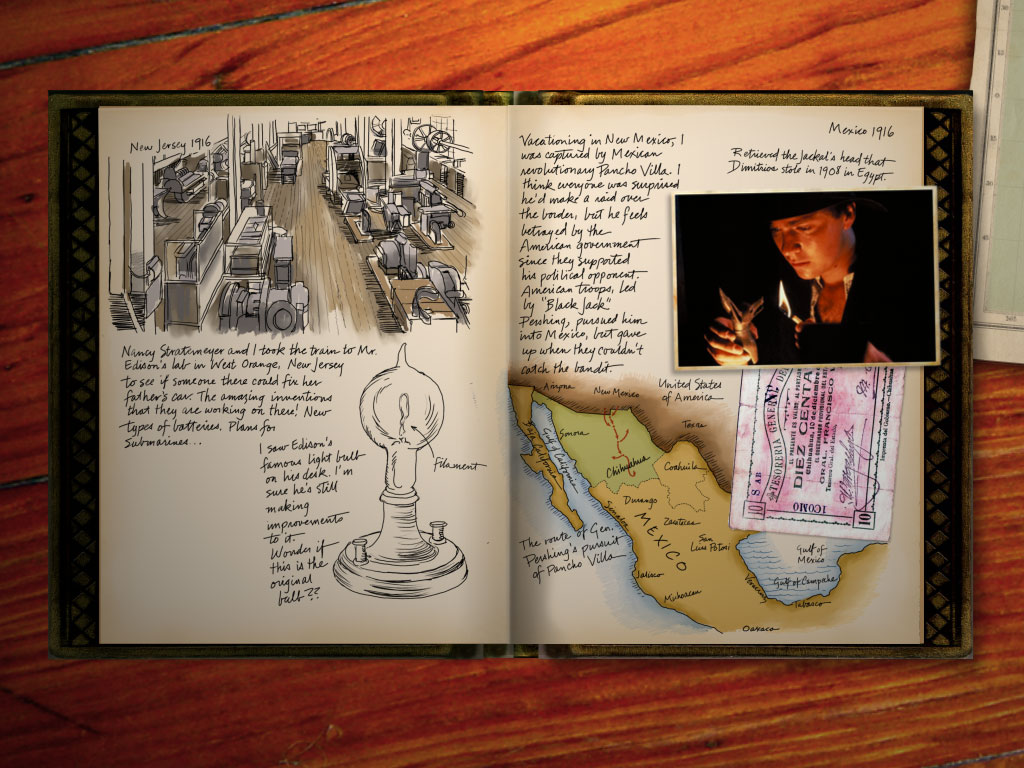 New Jersey 1916
Nancy Stratemeyer and I took the train to Mr.
Edison's lab in West Orange, New Jersey
to see if someone there could fix her
father's car. The amazing inventions
that they are working on there! New
types of batteries. Plans for
Submarines...
I saw Edison's
famous light bulb
on his desk. I'm
sure he's still
making
improvements
to it.
Wonder if
this is the
original
bulb??
filament
Vacationing in New Mexico, I
was captured by Mexican
revolutionary Pancho Villa. I
think everyone was surprised
he'd make a raid over
the border, but he feels
betrayed by the
American government
since they supported
his political opponent.
American troops, led
by "Black Jack"
Pershing, pursued him
into Mexico, but gave
up when they couldn't
catch the bandit.
Mexico 1916
Retrieved the Jackal's head that
Dimitrios stole in 1908 in Egypt.
Arizona
New Mexico
United States
of America
Texas
Baja California
Gulf of California
Sonora
Chihuahua
Coahuila
Durango
Sinaloa
Zacatecas
MEXICO
San
Luis Potosi
Gulf of
Mexico
Gulf of Campeche
Jalisco
Michoacan
Veracruz
Tabasco
Oaxaca
The route of Gen.
Pershing's Pursuit
of Pancho Villa
TESORERIA GENERAL DE
DIEZ CENTA
GRAL. FRANCISCO
10
10
1COMO